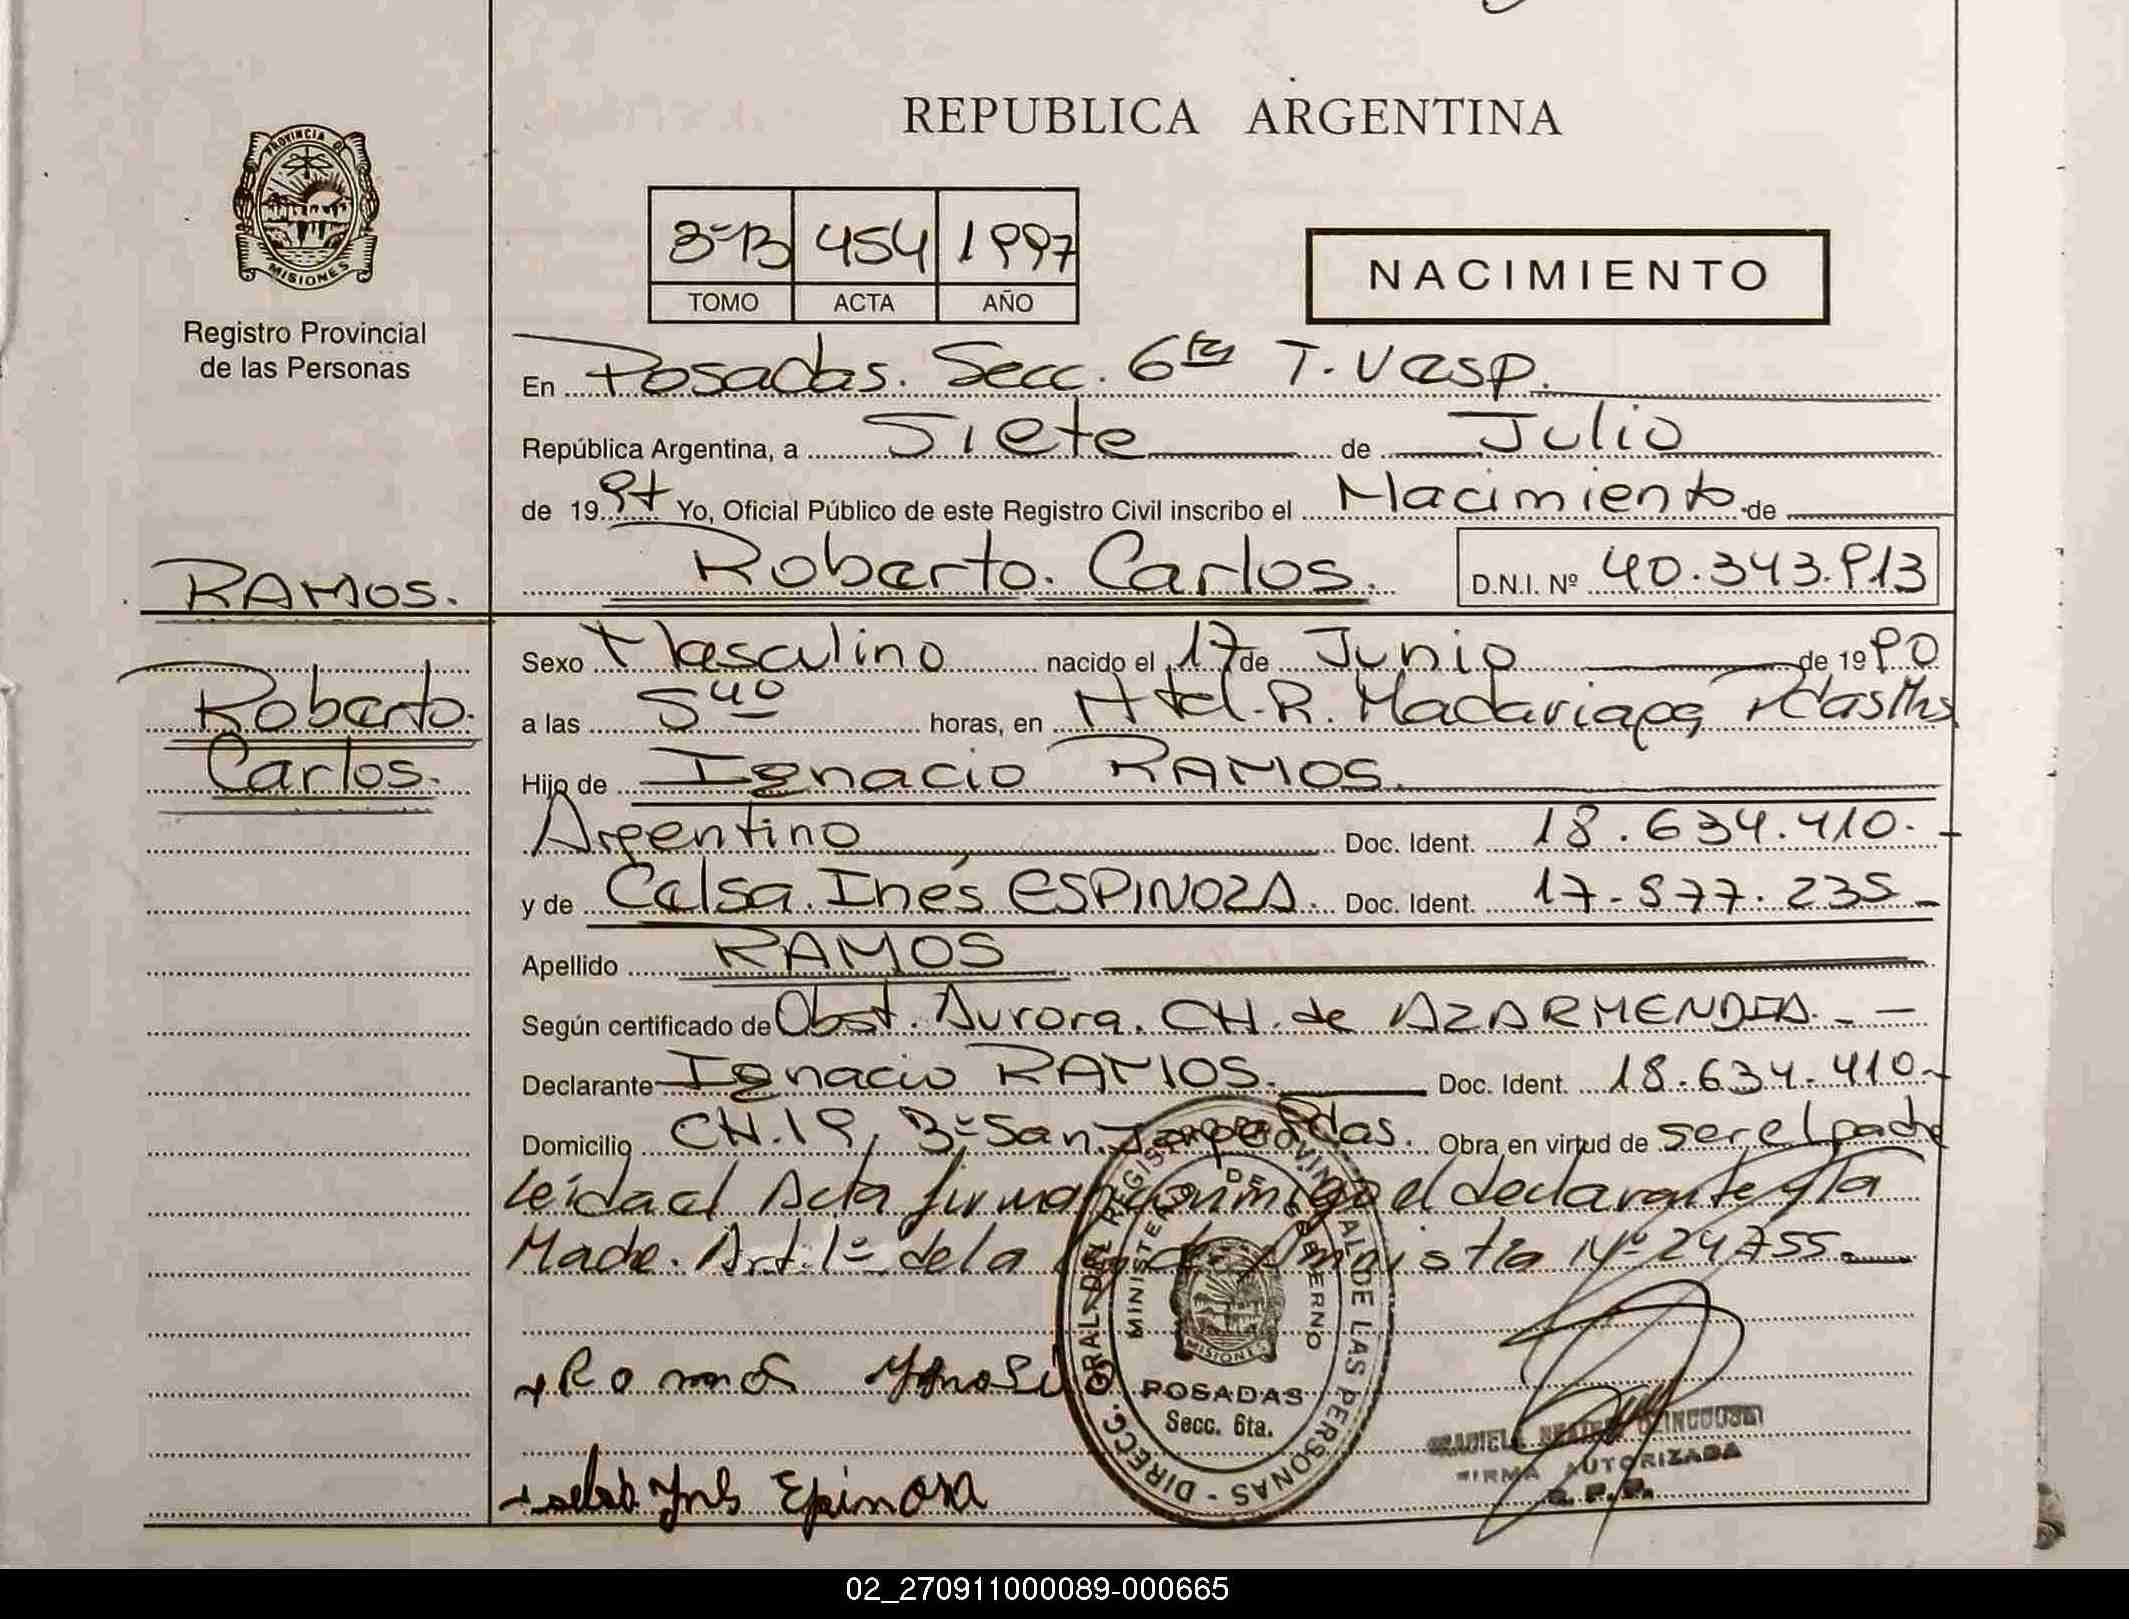 REPUBLICA ARGENTINA
PROVINCIA DE
MISIONES
Registro Provincial
de las Personas
3º-B 454 1997
TOMO ACTA AÑO
NACIMIENTO
En Posadas. Secc. 6ta T. Vesp.
República Argentina, a Siete de Julio
de 1997 Yo, Oficial Público de este Registro Civil inscribo el Nacimiento de
Roberto. Carlos. D.N.I. Nº 40.343.913
RAMOS.
Roberto.
Carlos.
Sexo Masculino nacido el 17 de Junio de 1990
a las 5 40 horas, en Htal. R. Madariaga Pdas Mns
Hijo de Ignacio RAMOS.
Argentino Doc. Ident. 18.634.410.-
y de Celsa. Inés ESPINOZA. Doc. Ident. 17.577.235 -
Apellido RAMOS
Según certificado de Obst. Aurora. CH. de AZARMENDIA. - -
Declarante Ignacio RAMOS. Doc. Ident. 18.634.410-
Domicilio CH.19, Bº San Pdas. Obra en virtud de ser el padre
Leída el Acta firman conmigo el declarante y la
Madre. Art. 1º de la Ley de Amnistía Nº 24755.
Ramos
Inés Espinosa
DIRECC. GRAL. DEL REGISTRO PROVINCIAL DE LAS PERSONAS
MINISTERIO DE GOBIERNO
MISIONES
POSADAS
Secc. 6ta.
FIRMA AUTORIZADA
02_270911000089-000665